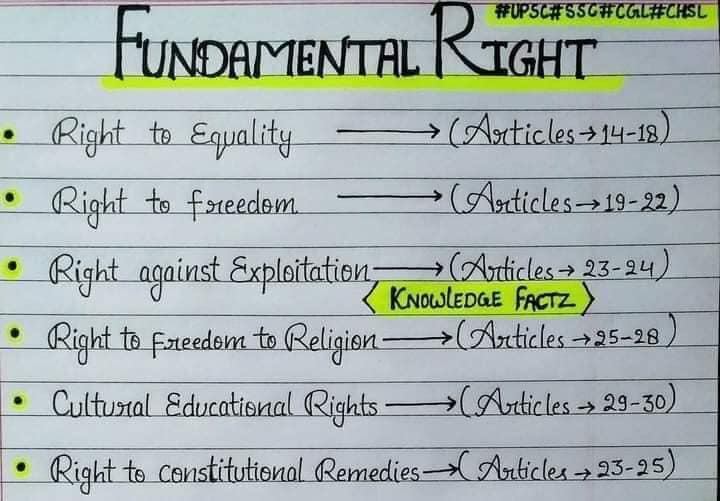 #UPSC#SSC#CGL#CHSL
FUNDAMENTAL RIGHT
Right to Equality → (Articles → 14-18)
Right to freedom → (Articles → 19-22)
Right against Exploitation → (Articles → 23-24)
KNOWLEDGE FACTZ
Right to Freedom to Religion → (Articles → 25-28)
Cultural Educational Rights → (Articles → 29-30)
Right to constitutional Remedies → (Articles → 23-25)